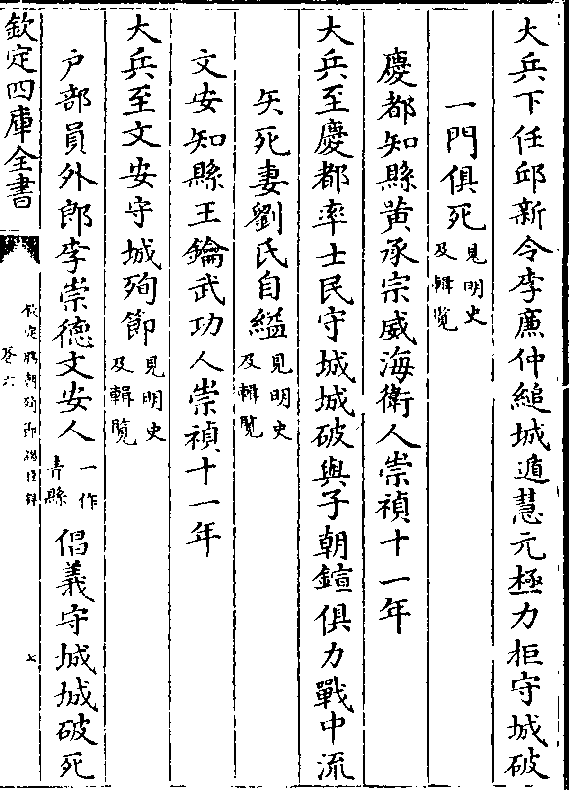 大兵下任邱新令李廉仲縋城遁慧元極力拒守城破
一門俱死見明史及輯覽
慶都知縣黄承宗威海衛人崇禎十一年
大兵至慶都率士民守城城破與子朝鍹俱力戰中流
矢死妻劉氏自縊見明史及輯覽
文安知縣王鑰武功人崇禎十一年
大兵至文安守城殉節見明史及輯覽
户部員外郎李崇德文安人一作青縣倡義守城城破死
欽定四庫全書
欽定勝朝殉節諸臣録
卷六
七